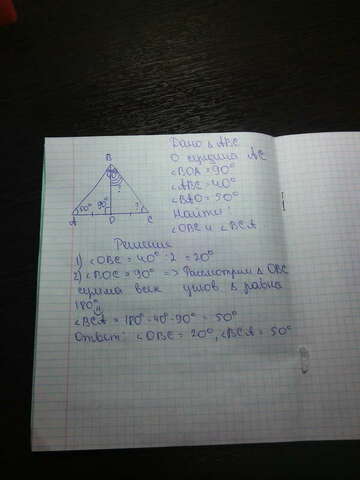 Дано Δ ABC
O середина AC
∠BOA = 90°
∠ABC = 40°
∠BAO = 50°
Найти:
∠OBC и ∠BCA
B
50°
90°
?
?
A
O
C
Решение
1) ∠OBC = 40° · 2 = 20°
2) ∠BOC = 90° => Рассмотрим Δ OBC
сумма всех углов Δ равна
180°
∠BCA = 180° - 40° - 90° = 50°
Ответ: ∠OBC = 20°, ∠BCA = 50°